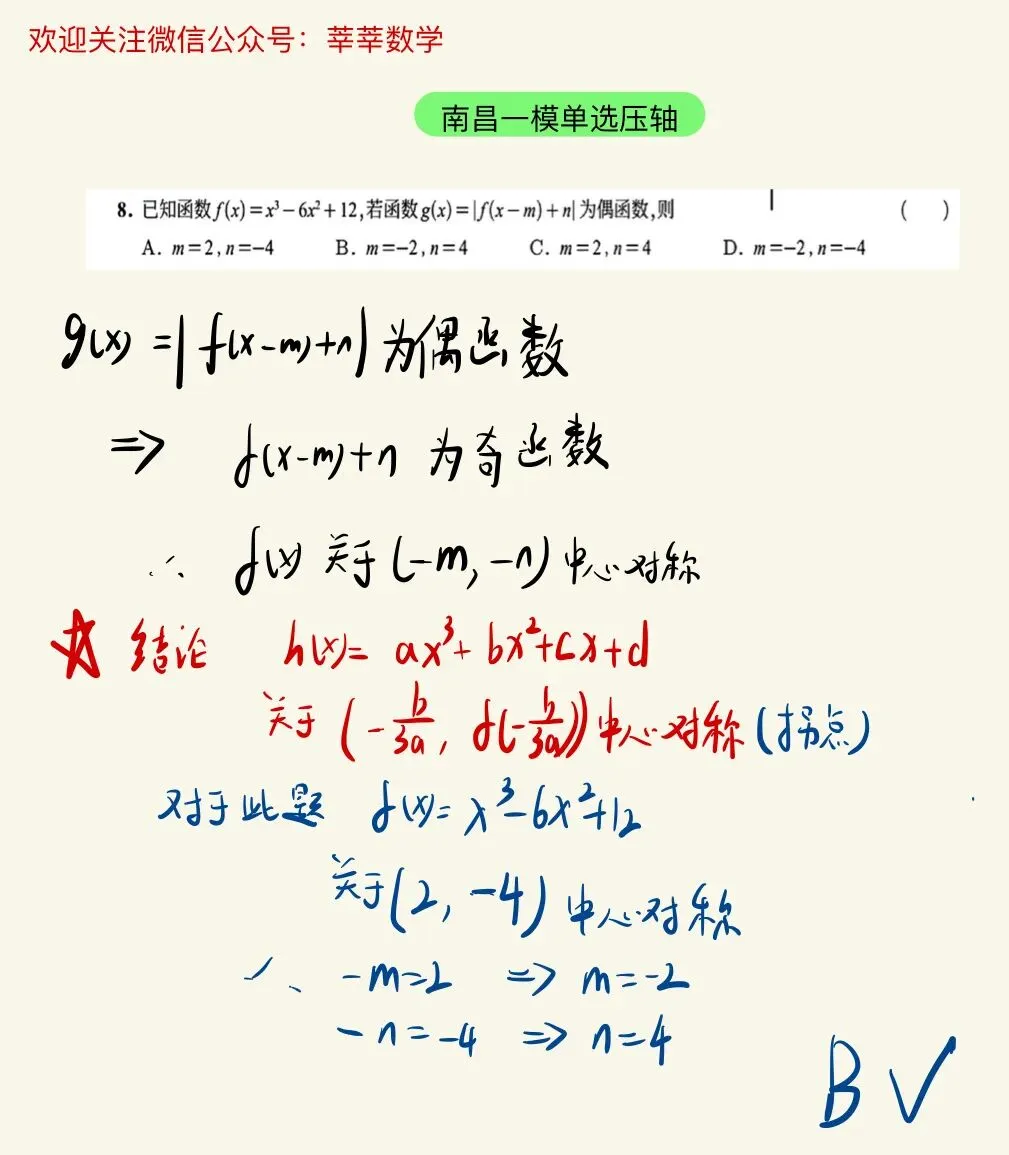 欢迎关注微信公众号：莘莘数学
南昌一模单选压轴
8. 已知函数f(x)=x³－6x²＋12,若函数g(x)=|f(x－m)＋n|为偶函数,则 ( )
A. m=2,n=－4 B. m=－2,n=4 C. m=2,n=4 D. m=－2,n=－4
g(x) =|f(x-m)+n| 为偶函数
=> f(x-m)+n 为奇函数
∴ f(x) 关于(-m, -n) 中心对称
☆ 结论 h(x)= ax³+bx²+cx+d
关于 (-b/3a, f(-b/3a)) 中心对称 (拐点)
对于此题 f(x)= x³-6x²+12
关于(2, -4) 中心对称
∴ -m=2 => m=-2
-n=-4 => n=4
B √